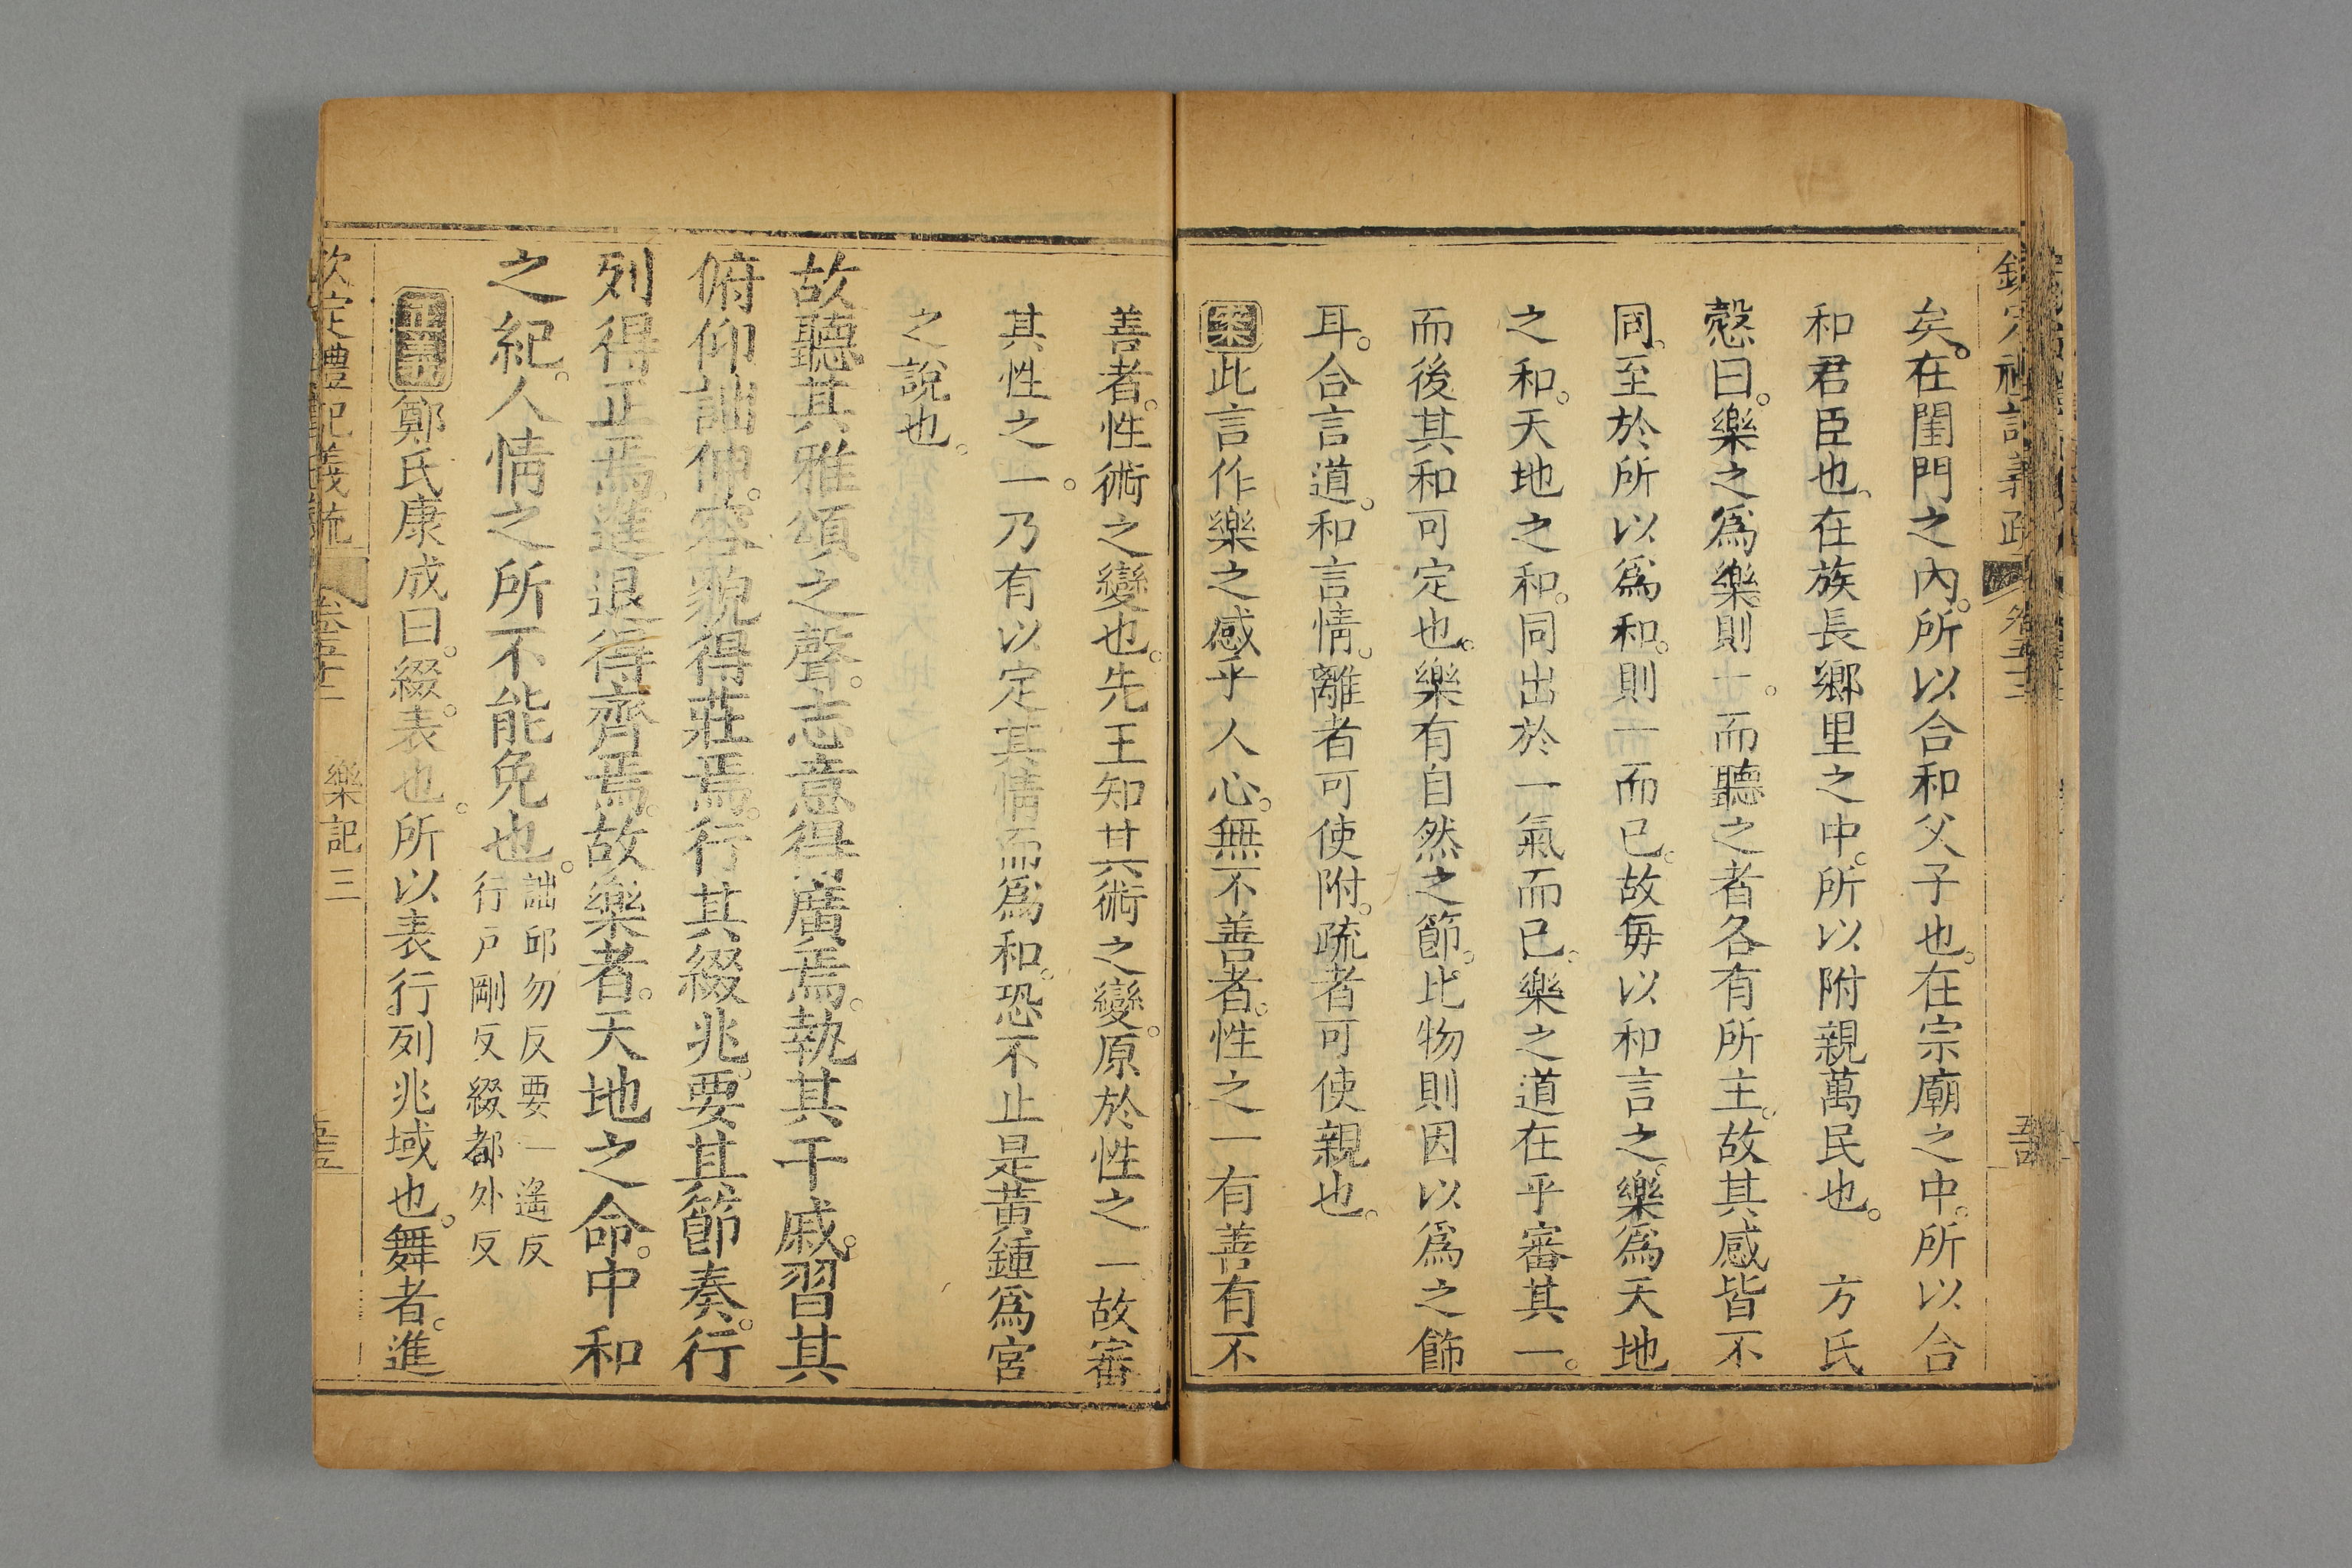 欽定禮記義疏 卷五十三
矣。在閨門之內。所以合和父子也。在宗廟之中。所以合
和君臣也。在族長鄉里之中。所以附親萬民也。 方氏
慤曰。樂之爲樂則一。而聽之者各有所主。故其感皆不
同。至於所以爲和。則一而已。故每以和言之。樂爲天地
之和。天地之和。同出於一氣而已。樂之道在乎審其一。
而後其和可定也。樂有自然之節。比物則因以爲之飾
耳。合言道。和言情。離者可使附。疏者可使親也。
案此言作樂之感乎人心。無不善者。性之一有善有不
善者。性術之變也。先王知其術之變。原於性之一故審
其性之一。乃有以定其情而爲和。恐不止是黃鍾爲宮
之說也。
故聽其雅頌之聲。志意得廣焉。執其干戚。習其
俯仰詘伸。容貌得莊焉。行其綴兆。要其節奏。行
列得正焉。進退得齊焉。故樂者。天地之命。中和
之紀。人情之所不能免也。
詘邱勿反要一遙反
行戶剛反綴都外反
正義鄭氏康成曰。綴。表也。所以表行列兆域也。舞者。進
欽定禮記義疏 卷五十三 樂記三